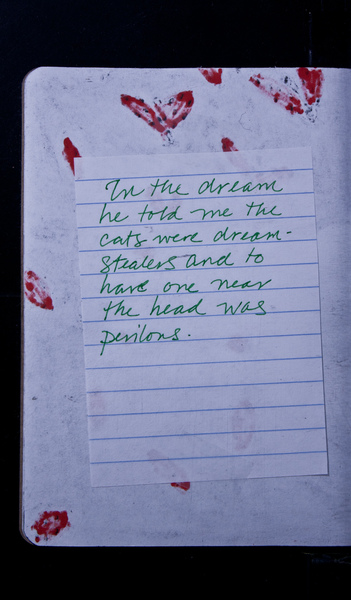 In the dream
he told me the
cats were dream-
stealers and to
have one near
the head was
perilous.